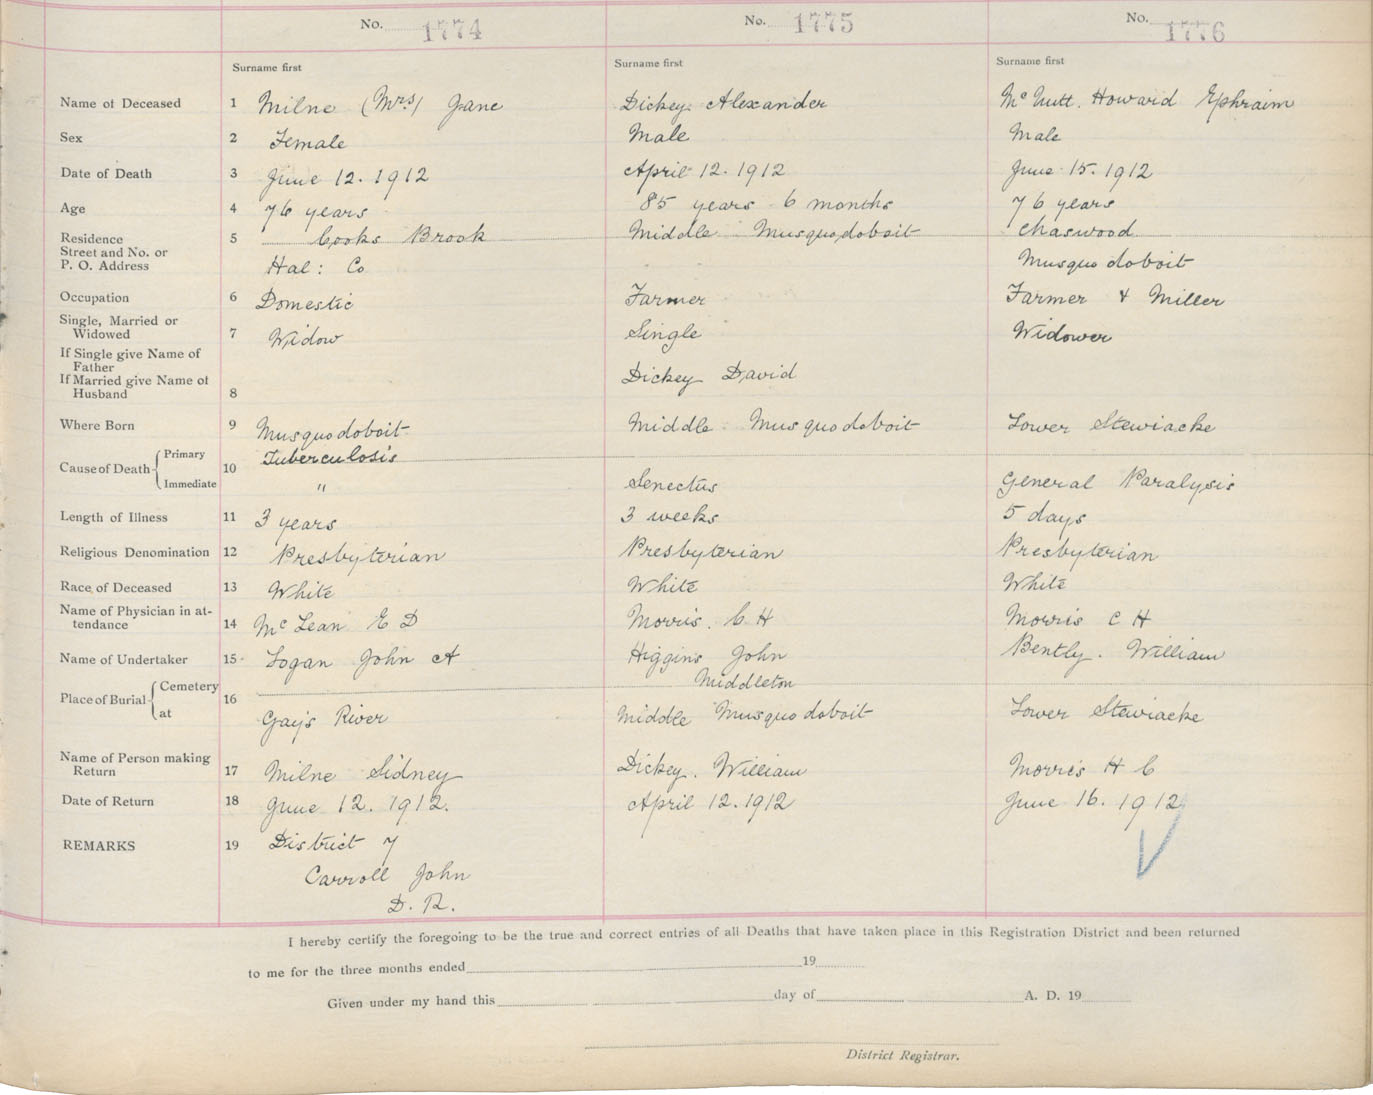 No. 1774 No. 1775 No. 1776
Surname first Surname first Surname first
Name of Deceased 1 Milne (Mrs) Jane Dickey Alexander McNutt. Howard Ephraim
Sex 2 Female Male Male
Date of Death 3 June 12. 1912 April 12. 1912 June 15. 1912
Age 4 76 years 85 years 6 months 76 years
Residence 5 Cooks Brook Middle Musquodoboit Chaswood
Street and No. or
P. O. Address Hal: Co Musquodoboit
Occupation 6 Domestic Farmer Farmer & Miller
Single, Married or
Widowed 7 Widow Single Widower
If Single give Name of
Father
If Married give Name of Dickey David
Husband 8
Where Born 9 Musquodoboit Middle Musquodoboit Lower Stewiacke
Primary Tuberculosis
Cause of Death 10
Immediate " Senectus General Paralysis
Length of Illness 11 3 years 3 weeks 5 days
Religious Denomination 12 Presbyterian Presbyterian Presbyterian
Race of Deceased 13 White White White
Name of Physician in at-
tendance 14 McLean E D Morris. C H Morris C H
Name of Undertaker 15 Logan John A Higgins John Bently. William
Cemetery Middleton
Place of Burial 16
at Gay's River Middle Musquodoboit Lower Stewiacke
Name of Person making
Return 17 Milne Sidney Dickey. William Morris H C
Date of Return 18 June 12. 1912. April 12. 1912 June 16. 1912
REMARKS 19 District 7
Carroll John
D. R.
I hereby certify the foregoing to be the true and correct entries of all Deaths that have taken place in this Registration District and been returned
to me for the three months ended 19
Given under my hand this day of A. D. 19
District Registrar.